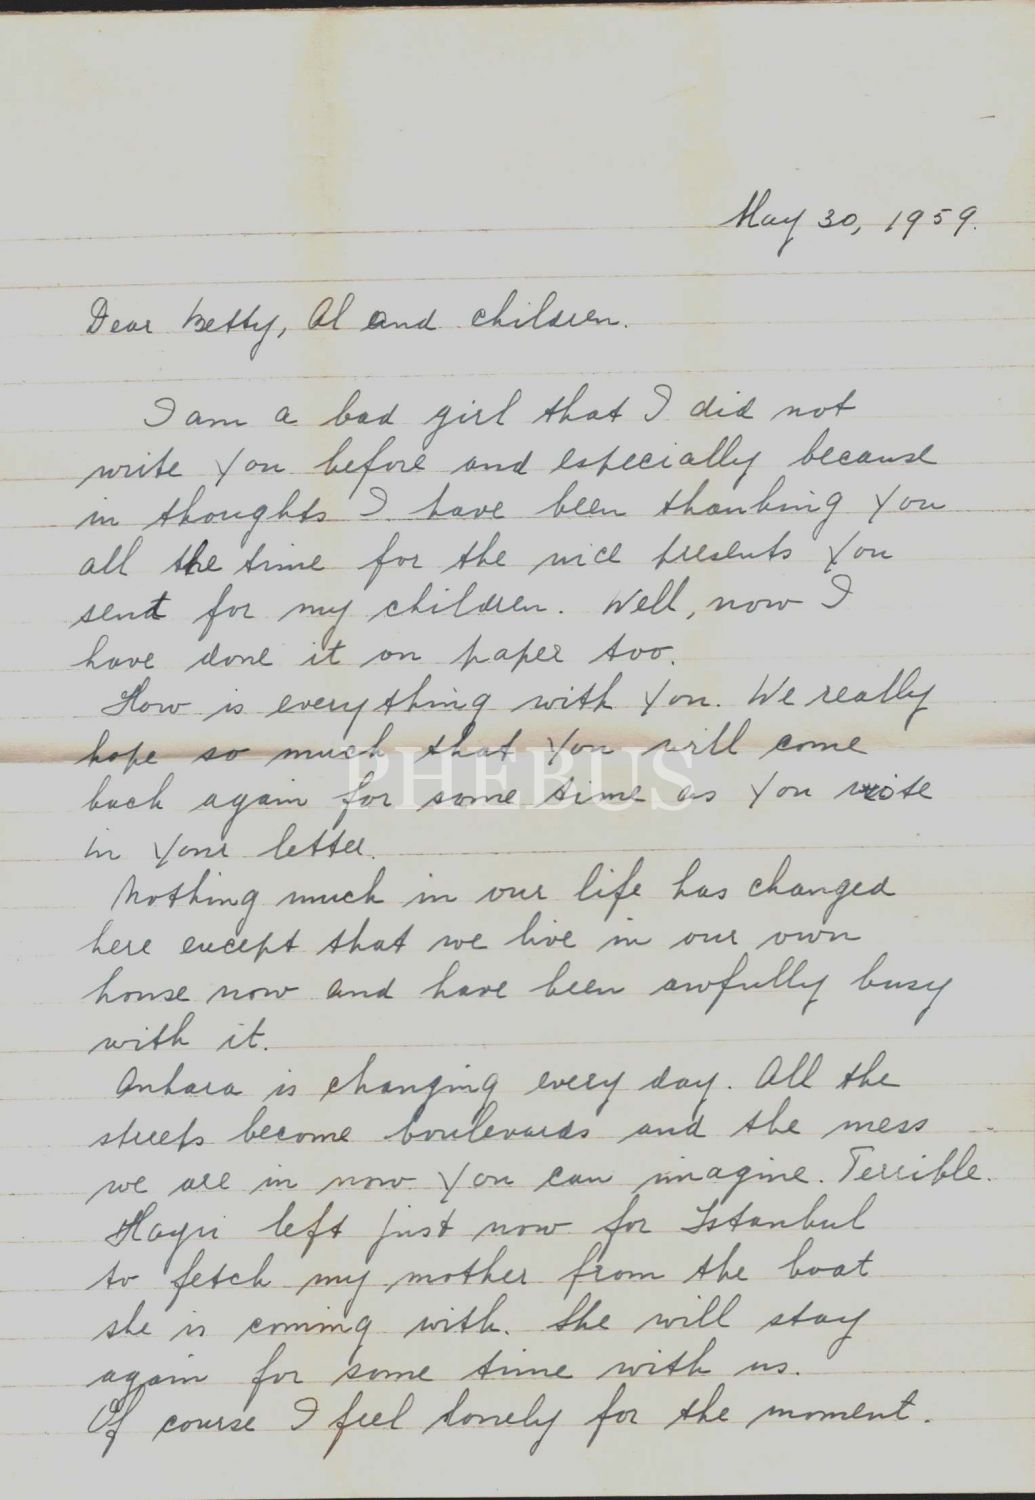 May 30, 1959.
Dear Betty, Al and children.
I am a bad girl that I did not
write You before and especially because
in thoughts I have been thanking You
all the time for the nice presents You
sent for my children. Well, now I
have done it on paper too.
How is everything with You. We really
hope so much that You will come
back again for some time as You wrote
in Your letter.
Nothing much in our life has changed
here except that we live in our own
house now and have been awfully busy
with it.
Ankara is changing every day. All the
streets become boulevards and the mess
we are in now You can imagine. Terrible.
Hayri left just now for Istanbul
to fetch my mother from the boat
she is coming with. She will stay
again for some time with us.
Of course I feel lonely for the moment.
PHEBUS